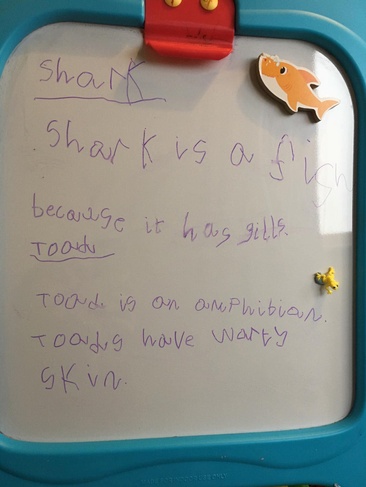 Shark
Shark is a fish
because it has gills.
Toads
Toad is an amphibian.
Toads have warty
skin.